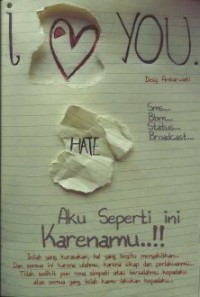 i ♥ YOU.
Sms...
Bbm...
Status...
Broadcast...
HATE
Aku Seperti ini
Karenamu..!!
Inilah yang kurasakan, hal yang begitu menyakitkan...
Dan semua ini karena ulahmu, karena sikap dan perlakuanmu...
Tidak sedikit pun rasa simpati atau bersalahmu kepadaku
atas semua yang telah kamu lakukan kepadaku...